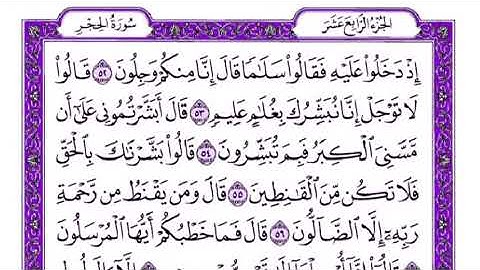 سُورَةُ الحِجْرِ
الجُزْءُ الرَّابِعَ عَشَرَ
إِذْ دَخَلُوا۟ عَلَيْهِ فَقَالُوا۟ سَلَـٰمًا قَالَ إِنَّا مِنكُمْ وَجِلُونَ ٥٢ قَالُوا۟
لَا تَوْجَلْ إِنَّا نُبَشِّرُكَ بِغُلَـٰمٍ عَلِيمٍ ٥٣ قَالَ أَبَشَّرْتُمُونِى عَلَىٰٓ أَن
مَّسَّنِىَ ٱلْكِبَرُ فَبِمَ تُبَشِّرُونَ ٥٤ قَالُوا۟ بَشَّرْنَـٰكَ بِٱلْحَقِّ
فَلَا تَكُن مِّنَ ٱلْقَـٰنِطِينَ ٥٥ قَالَ وَمَن يَقْنَطُ مِن رَّحْمَةِ
رَبِّهِۦٓ إِلَّا ٱلضَّآلُّونَ ٥٦ قَالَ فَمَا خَطْبُكُمْ أَيُّهَا ٱلْمُرْسَلُونَ